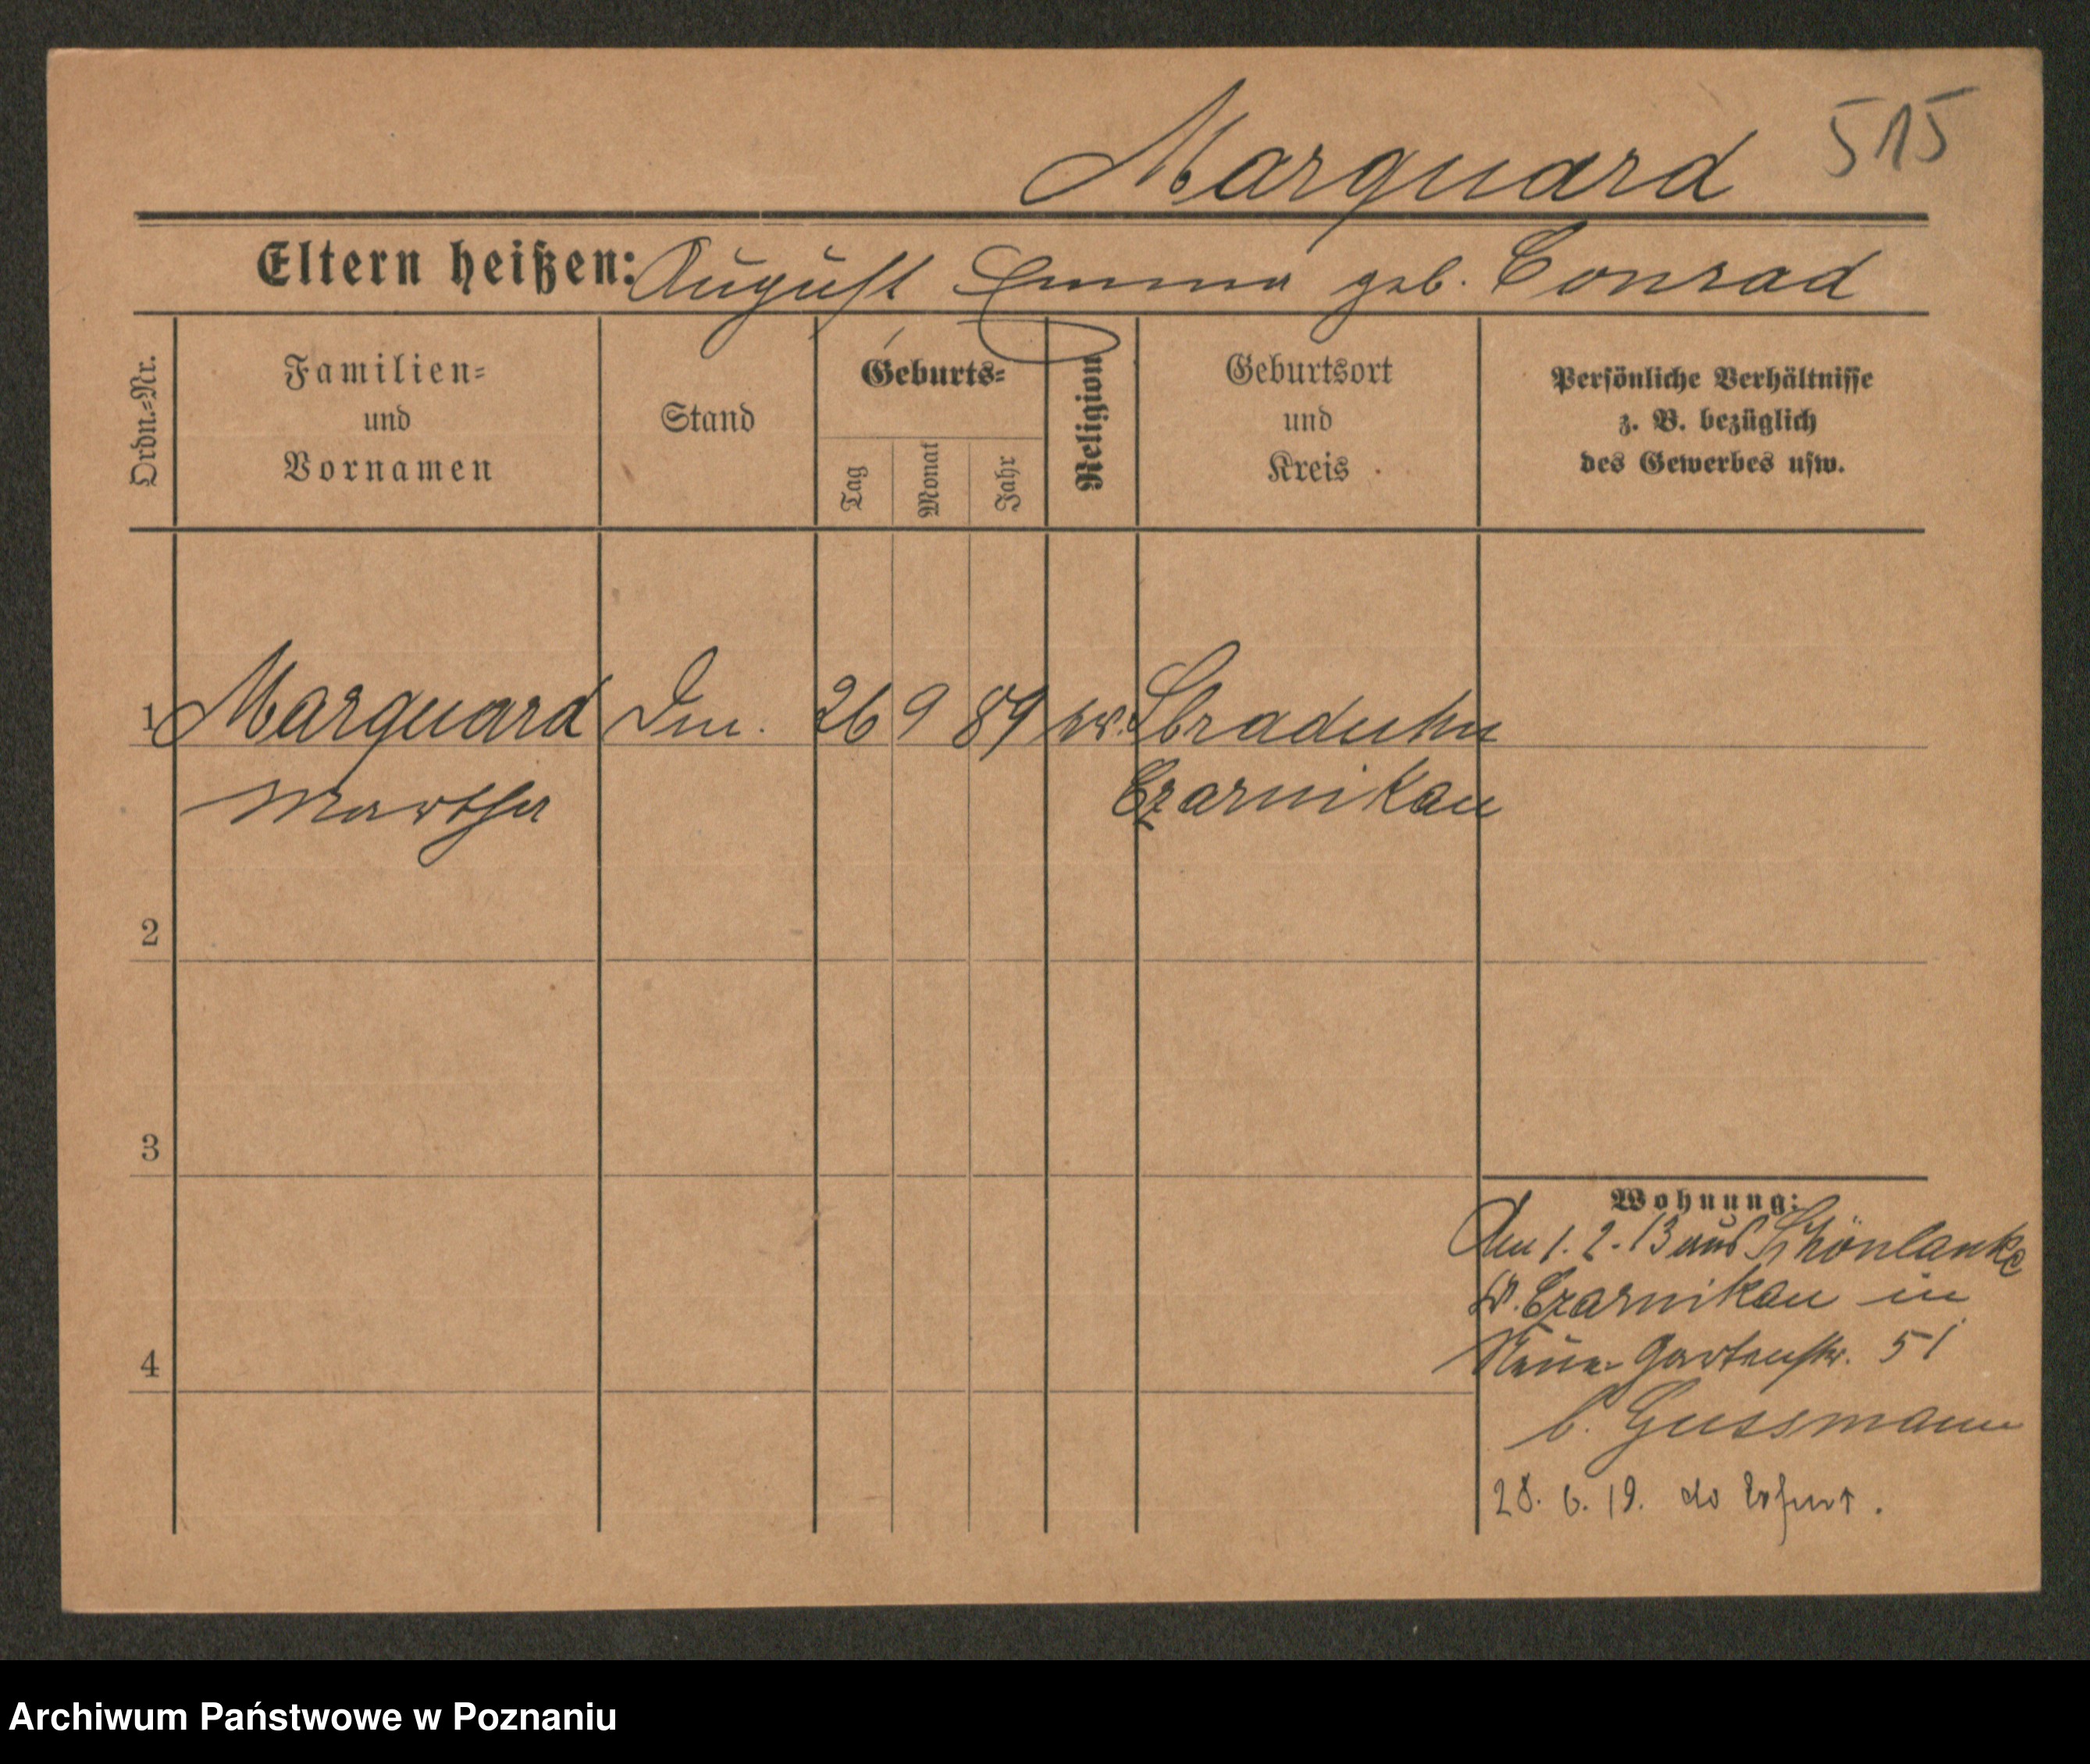 Marquard 515
Eltern heißen: August Emma geb. Conrad
Ordn.=Nr.
Familien=
und
Vornamen
Stand
Geburts=
Tag
Monat
Jahr
Religion
Geburtsort
und
Kreis
Persönliche Verhältnisse
z. B. bezüglich
des Gewerbes usw.
1 Marquard 26 9 89 Straduhn
Martha Czarnikau
2
3
4
Wohnung:
Am 1. 2. 13 aus Schönlanke
Kr. Czarnikau in
Neue Gartenstr. 51
b. Gussmann
28. 6. 19. do Erfurt.
Archiwum Państwowe w Poznaniu